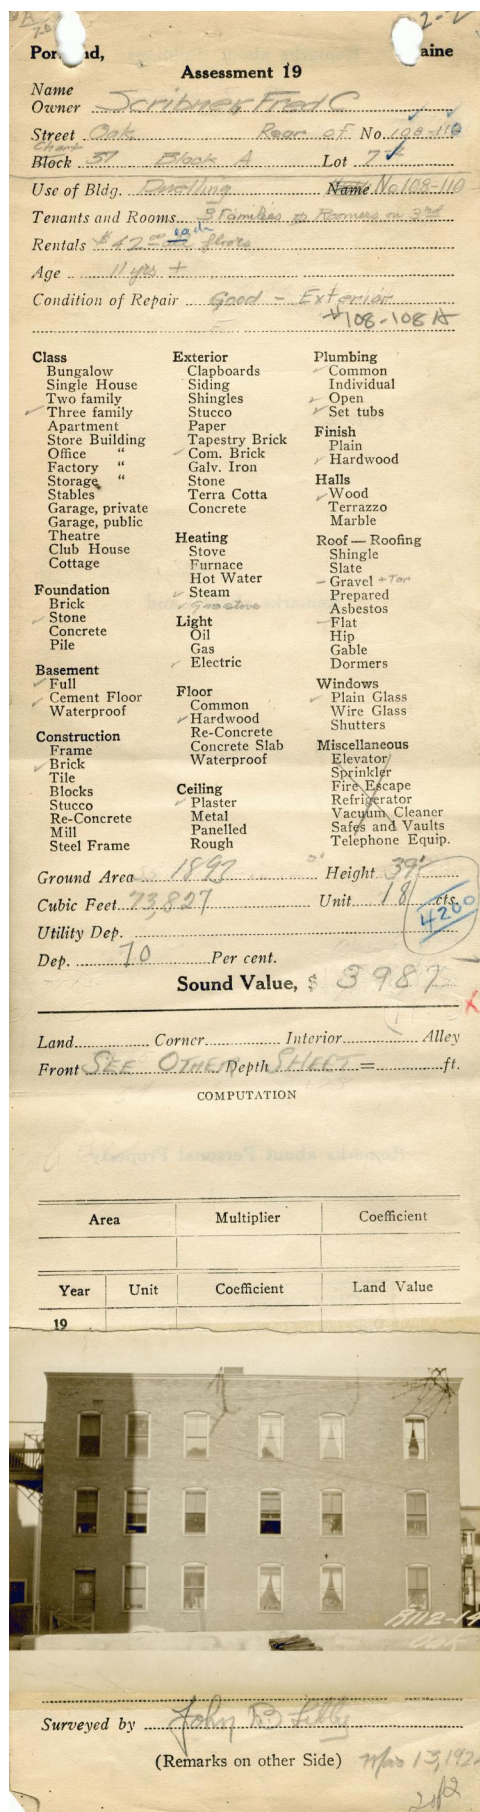 Portland, Maine
Assessment 19
Name
Owner Scribner, Fred C
Street Oak Rear of No. 108-110
Chart
Block 37 Block A Lot 7
Use of Bldg. Dwelling Name No 108-110
Tenants and Rooms 3 Families Roomers on 3rd
Rentals $42.00 each floors
Age 11 yrs +
Condition of Repair Good - Exterior
#108-108A
Class
Bungalow
Single House
Two family
✓ Three family
Apartment
Store Building
Office "
Factory "
Storage "
Stables
Garage, private
Garage, public
Theatre
Club House
Cottage
Foundation
Brick
✓ Stone
Concrete
Pile
Basement
✓ Full
✓ Cement Floor
Waterproof
Construction
Frame
✓ Brick
Tile
Blocks
Stucco
Re-Concrete
Mill
Steel Frame
Exterior
Clapboards
Siding
Shingles
Stucco
Paper
Tapestry Brick
✓ Com. Brick
Galv. Iron
Stone
Terra Cotta
Concrete
Heating
Stove
Furnace
Hot Water
✓ Steam
✓ Gas stove
Light
Oil
Gas
✓ Electric
Floor
Common
✓ Hardwood
Re-Concrete
Concrete Slab
Waterproof
Ceiling
✓ Plaster
Metal
Panelled
Rough
Plumbing
✓ Common
Individual
✓ Open
✓ Set tubs
Finish
Plain
✓ Hardwood
Halls
✓ Wood
Terrazzo
Marble
Roof — Roofing
Shingle
Slate
– Gravel + Tar
Prepared
Asbestos
– Flat
Hip
Gable
Dormers
Windows
✓ Plain Glass
Wire Glass
Shutters
Miscellaneous
Elevator
Sprinkler
Fire Escape
Refrigerator
Vacuum Cleaner
Safes and Vaults
Telephone Equip.
Ground Area 1893 Height 39'
Cubic Feet 73,827 Unit 18 cts.
4200
Utility Dep.
Dep. 70 Per cent.
Sound Value, $ 3987
Land Corner Interior Alley
Front SEE OTHER Depth SHEET = ft.
COMPUTATION
Area Multiplier Coefficient
Year Unit Coefficient Land Value
19
R112-14
OAK
Surveyed by John D Libby
(Remarks on other Side) Mar 13, 192
2 of 2